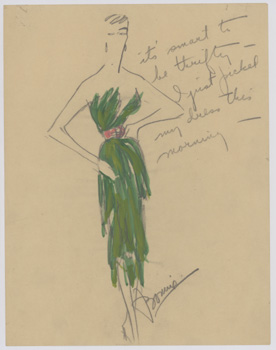 it's smart to
be thrifty —
I just picked
my dress this
morning —
Bonnie